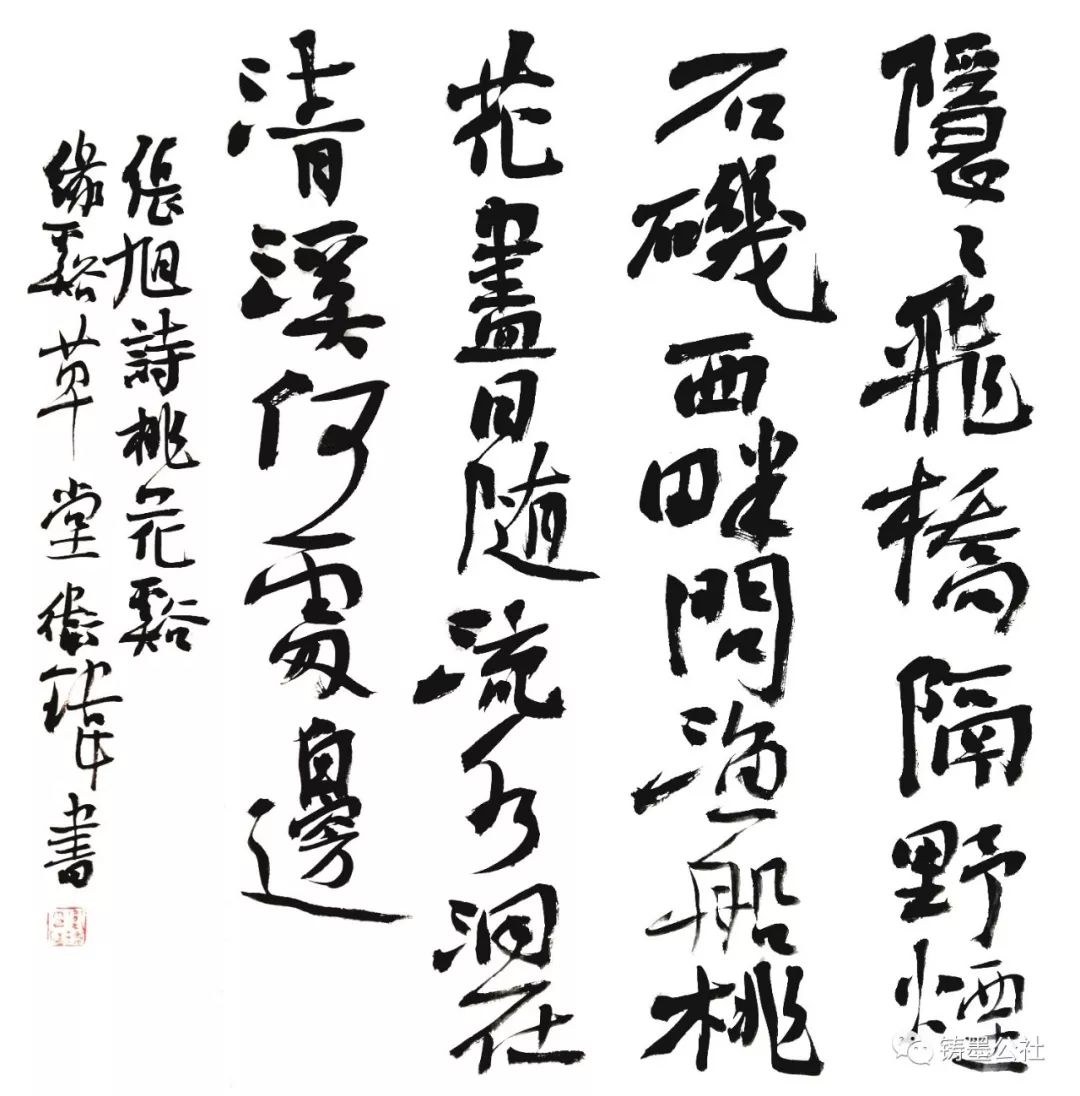 隱々飛橋隔野煙
石磯西畔問漁船桃
花盡日随流水洞在
清溪何處邊
張旭詩桃花谿
緣谿草堂書
铸墨公社